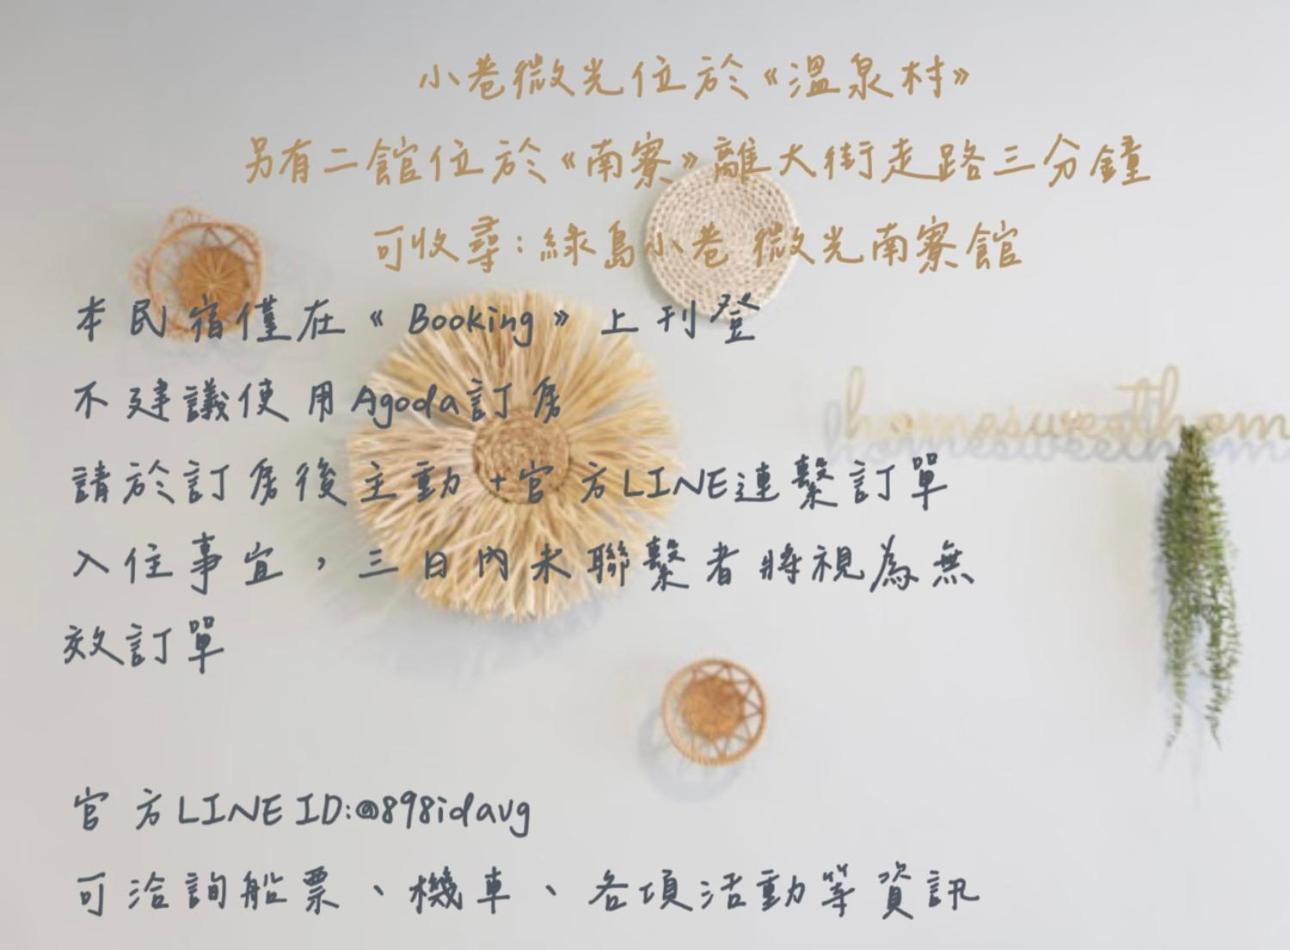 小巷微光位於《溫泉村》
另有二館位於《南寮》離大街走路三分鐘
可收尋:綠島小巷 微光南寮館
本民宿僅在《Booking》上刊登
不建議使用Agoda訂房
homesweethom
請於訂房後主動+官方LINE連繫訂單
入住事宜,三日內未聯繫者將視為無
效訂單
官方LINE ID:@898idavg
可洽詢船票、機車、各項活動等資訊